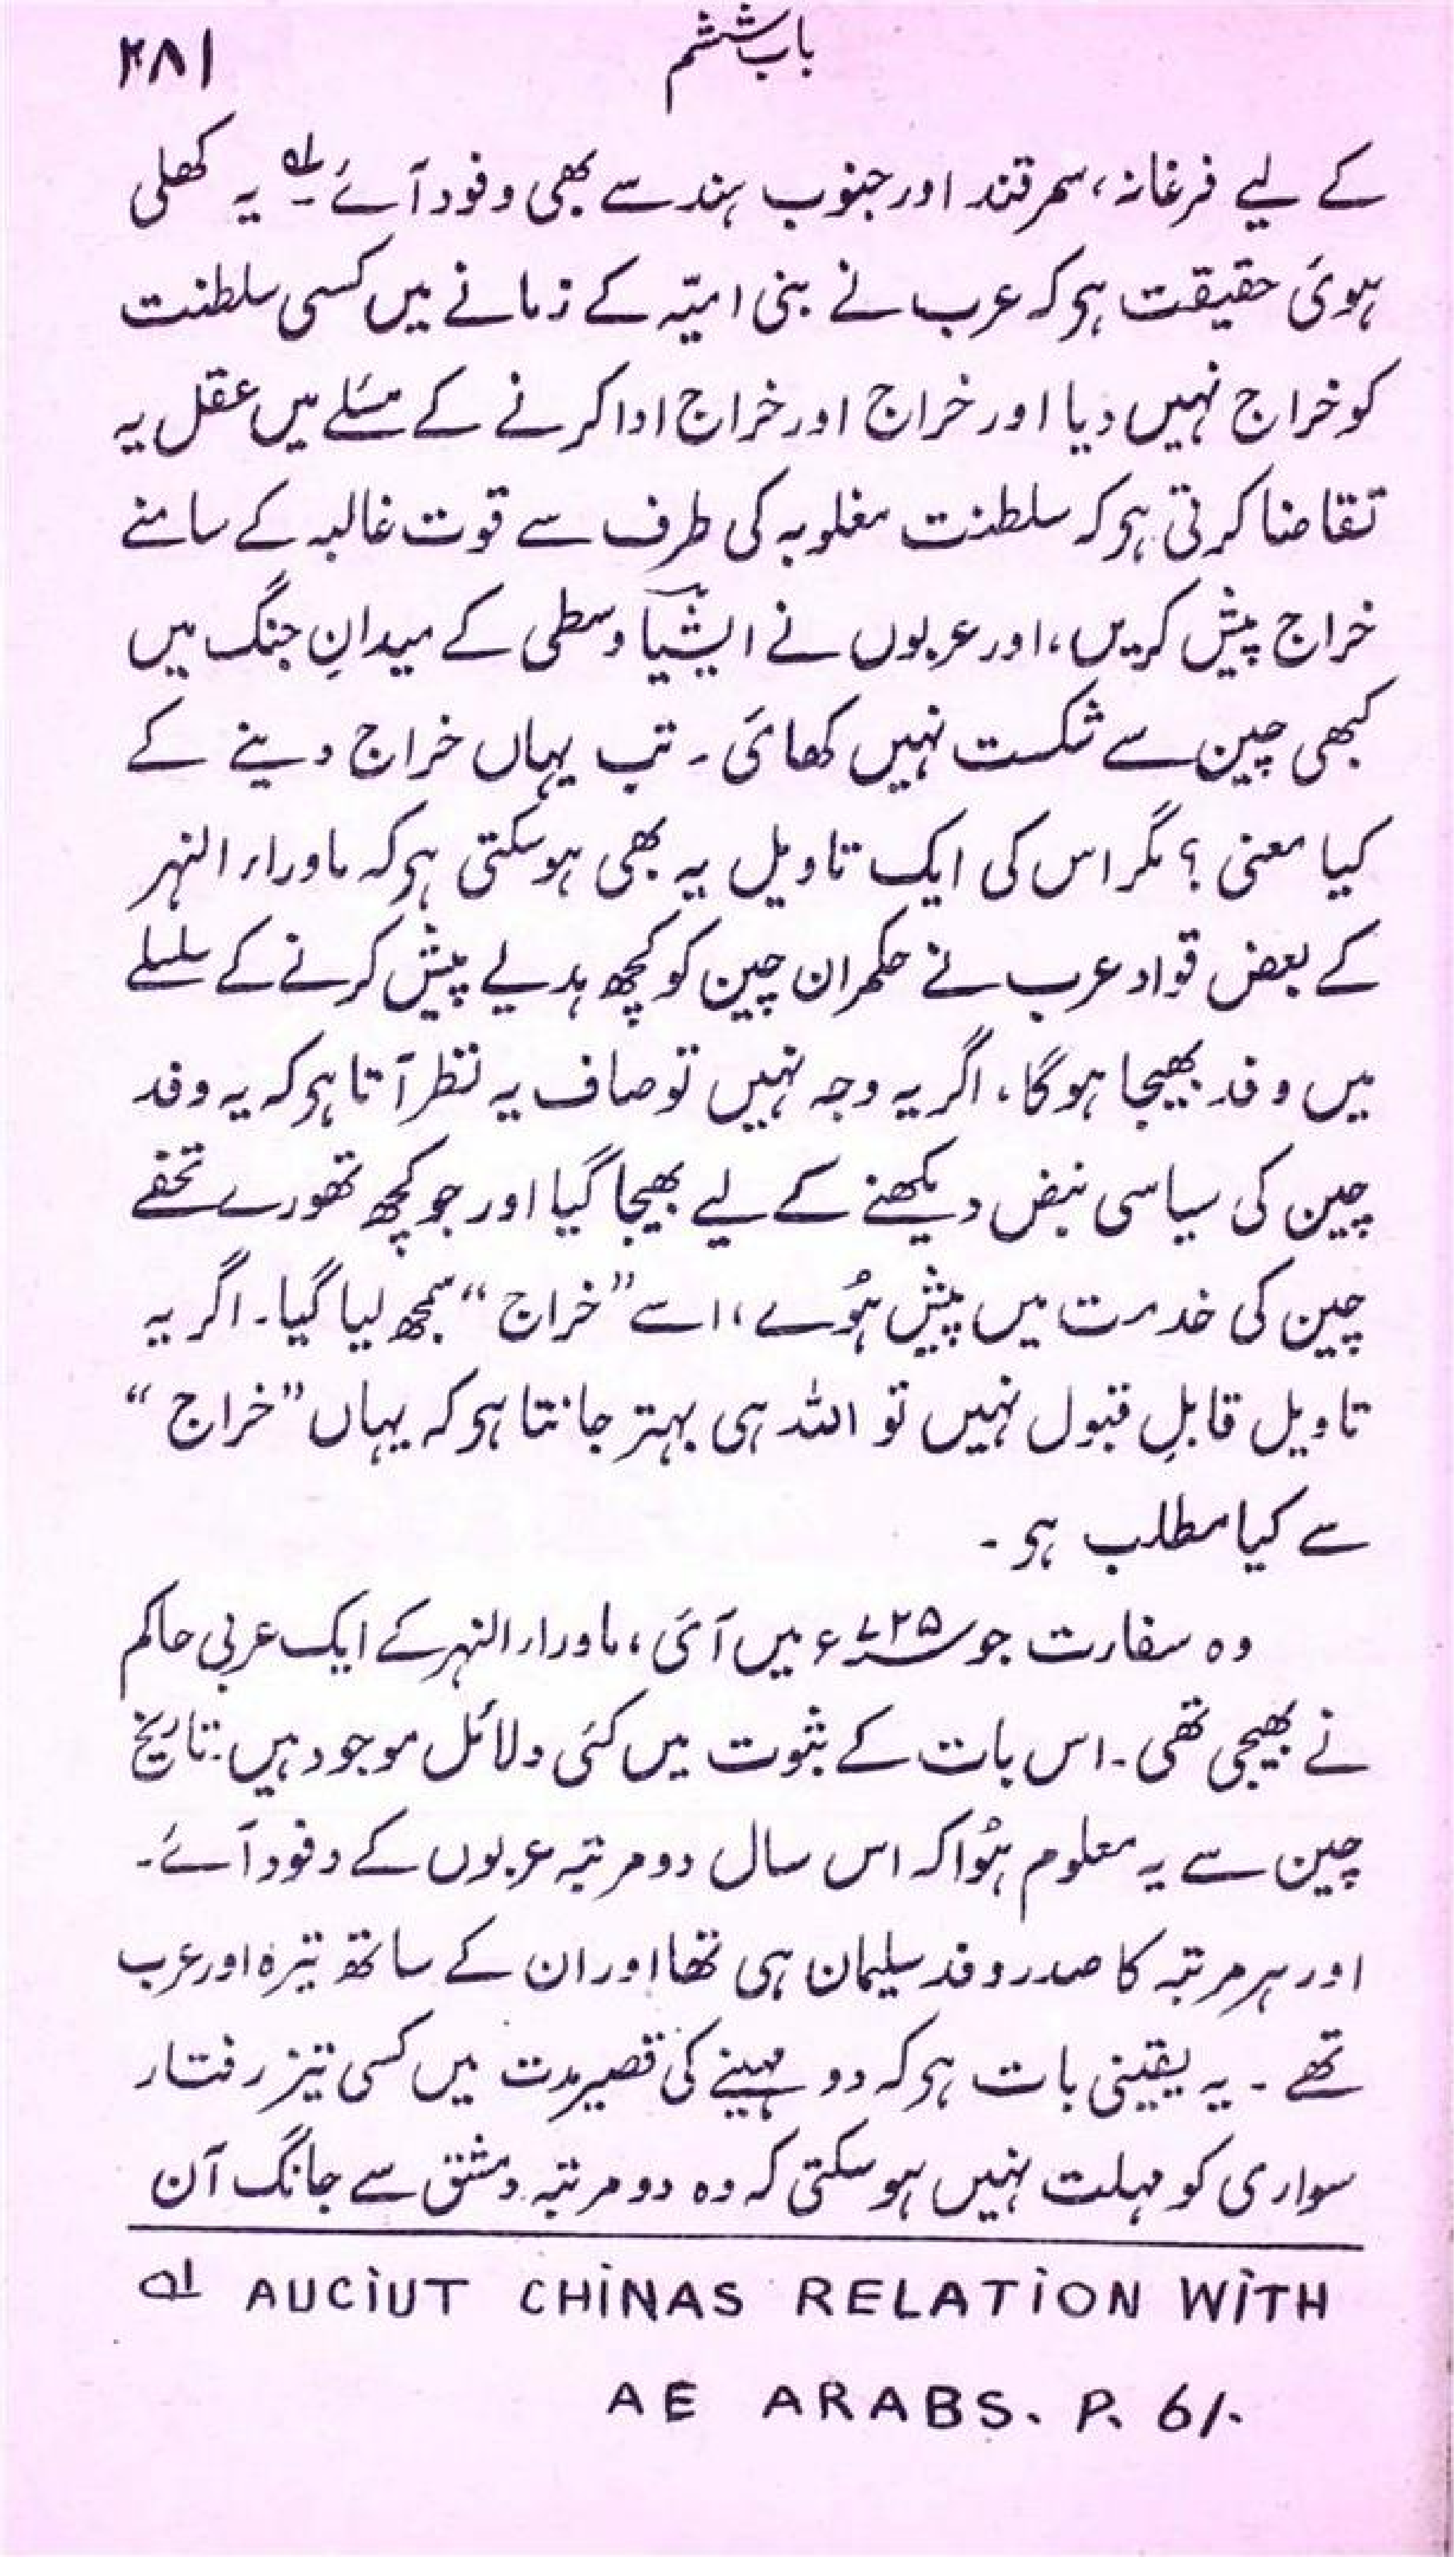 باب ششم ۲۸۱
کے لیے فرغانہ، سمرقند اور جنوب ہند سے بھی وفود آئے۔ لہ یہ کھلی
ہوئی حقیقت ہو کہ عرب نے بنی امیّہ کے زمانے میں کسی سلطنت
کو خراج نہیں دیا اور خراج اور خراج ادا کرنے کے مسئلے میں عقل یہ
تقاضا کرتی ہو کہ سلطنت مغلوبہ کی طرف سے قوت غالبہ کے سامنے
خراج پیش کریں، اور عربوں نے ایشیا وسطی کے میدانِ جنگ میں
کبھی چین سے شکست نہیں کھائی۔ تب یہاں خراج دینے کے
کیا معنی؟ مگر اس کی ایک تاویل یہ بھی ہوسکتی ہو کہ ماوراء النہر
کے بعض قواد عرب نے حکمران چین کو کچھ ہدیے پیش کرنے کے سلسلے
میں وفد بھیجا ہوگا، اگر یہ وجہ نہیں تو صاف یہ نظر آتا ہو کہ یہ وفد
چین کی سیاسی نبض دیکھنے کے لیے بھیجا گیا اور جو کچھ تھورے تحفے
چین کی خدمت میں پیش ہُوے، اسے ”خراج“ سمجھ لیا گیا۔ اگر یہ
تاویل قابلِ قبول نہیں تو اللہ ہی بہتر جانتا ہو کہ یہاں ”خراج“
سے کیا مطلب ہو۔
وہ سفارت جو ۷۲۵ء میں آئی، ماوراء النہر کے ایک عربی حاکم
نے بھیجی تھی۔ اس بات کے ثبوت میں کئی دلائل موجود ہیں: تاریخ
چین سے یہ معلوم ہُوا کہ اس سال دو مرتبہ عربوں کے وفود آئے۔
اور ہر مرتبہ کا صدر وفد سلیمان ہی تھا اور ان کے ساتھ تیرہ اور عرب
تھے۔ یہ یقینی بات ہو کہ دو مہینے کی قصیر مدت میں کسی تیز رفتار
سواری کو مہلت نہیں ہوسکتی کہ وہ دو مرتبہ دمشق سے جانگ آن
لہ AUCIUT CHINAS RELATION WITH
AE ARABS. P. 61.